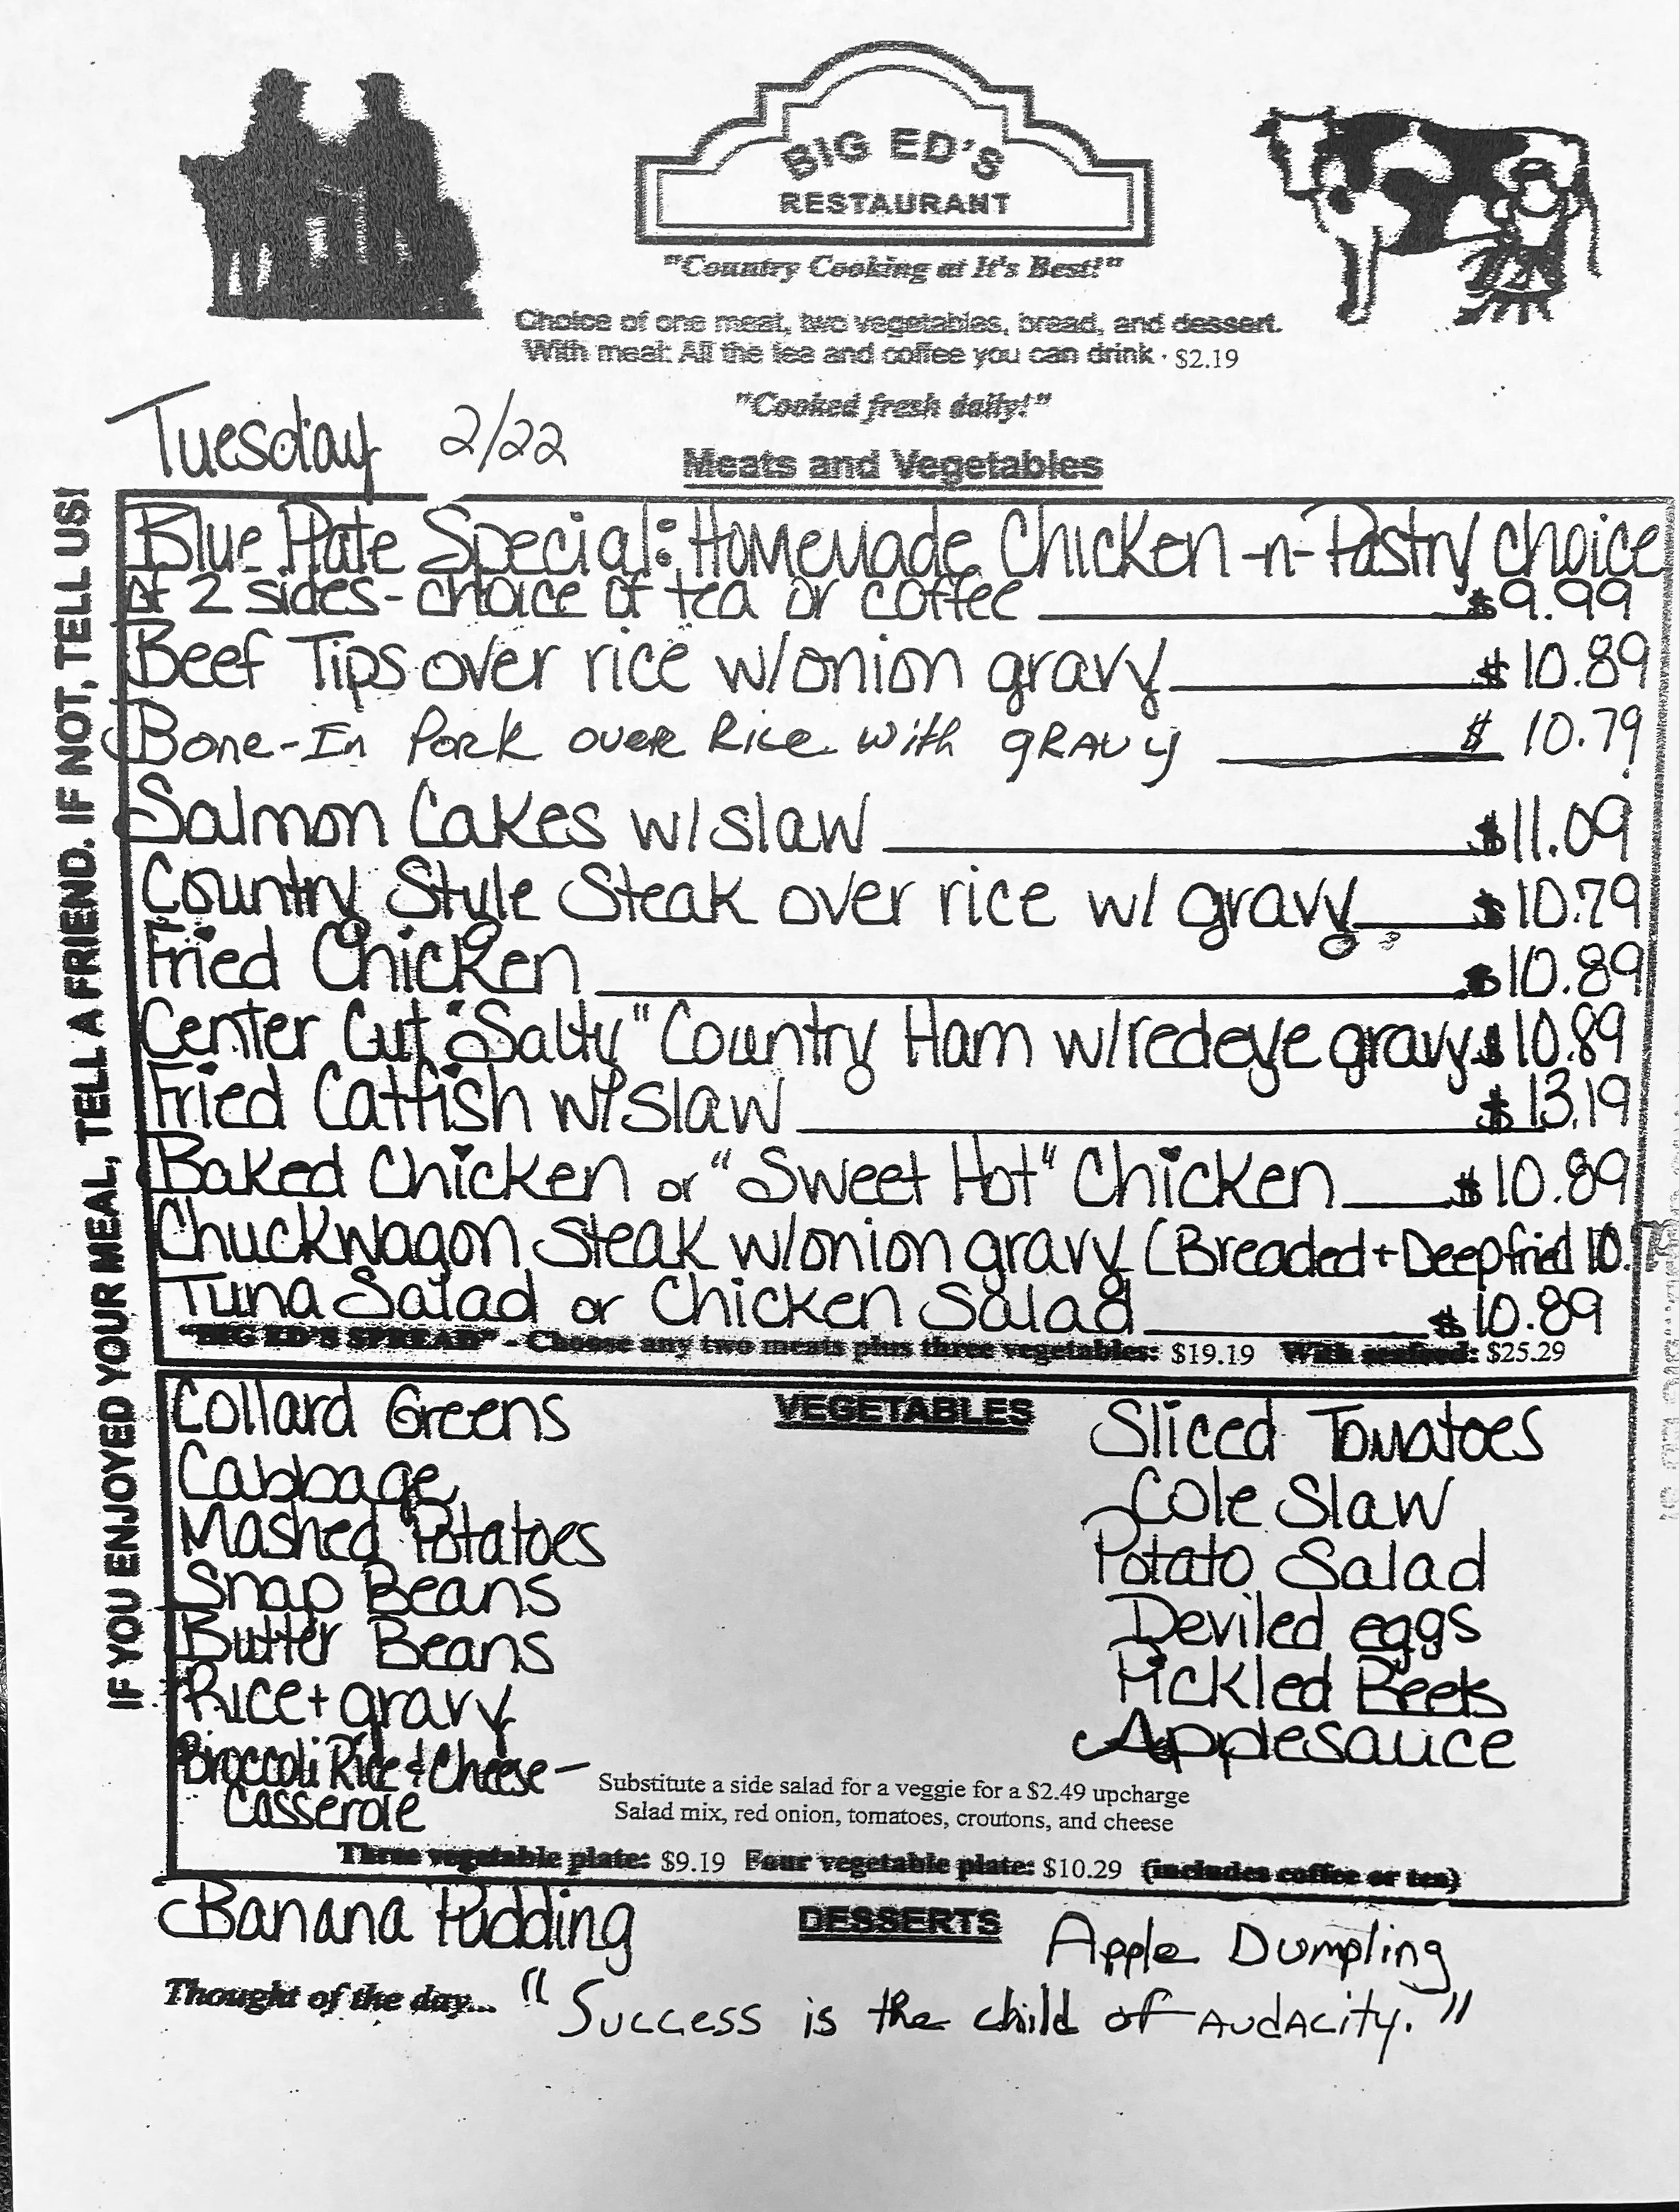 BIG ED'S
RESTAURANT
"Country Cooking at It's Best!"
Choice of one meat, two vegetables, bread, and dessert.
With meal: All the tea and coffee you can drink · $2.19
"Cooked fresh daily!"
Tuesday 2/22
Meats and Vegetables
IF YOU ENJOYED YOUR MEAL, TELL A FRIEND. IF NOT, TELL US!
Blue Plate Special: Homemade Chicken -n- Pastry choice
of 2 sides - choice of tea or coffee $9.99
Beef Tips over rice w/onion gravy $10.89
Bone-In Pork over Rice with gravy $10.79
Salmon Cakes w/slaw $11.09
Country Style Steak over rice w/ gravy $10.79
Fried Chicken $10.89
Center Cut "Salty" Country Ham w/redeye gravy $10.89
Fried Catfish w/slaw $13.19
Baked Chicken or "Sweet Hot" Chicken $10.89
Chuckwagon Steak w/onion gravy (Breaded + Deepfried 10.79
Tuna Salad or Chicken Salad $10.89
"BIG ED'S SPREAD" - Choose any two meats plus three vegetables: $19.19 With seafood: $25.29
VEGETABLES
Collard Greens
Cabbage
Mashed Potatoes
Snap Beans
Butter Beans
Rice + gravy
Broccoli Rice & Cheese -
Casserole
Sliced Tomatoes
Cole Slaw
Potato Salad
Deviled eggs
Pickled Beets
Applesauce
Substitute a side salad for a veggie for a $2.49 upcharge
Salad mix, red onion, tomatoes, croutons, and cheese
Three vegetable plate: $9.19 Four vegetable plate: $10.29 (includes coffee or tea)
DESSERTS
Banana Pudding
Apple Dumpling
Thought of the day... "Success is the child of Audacity."